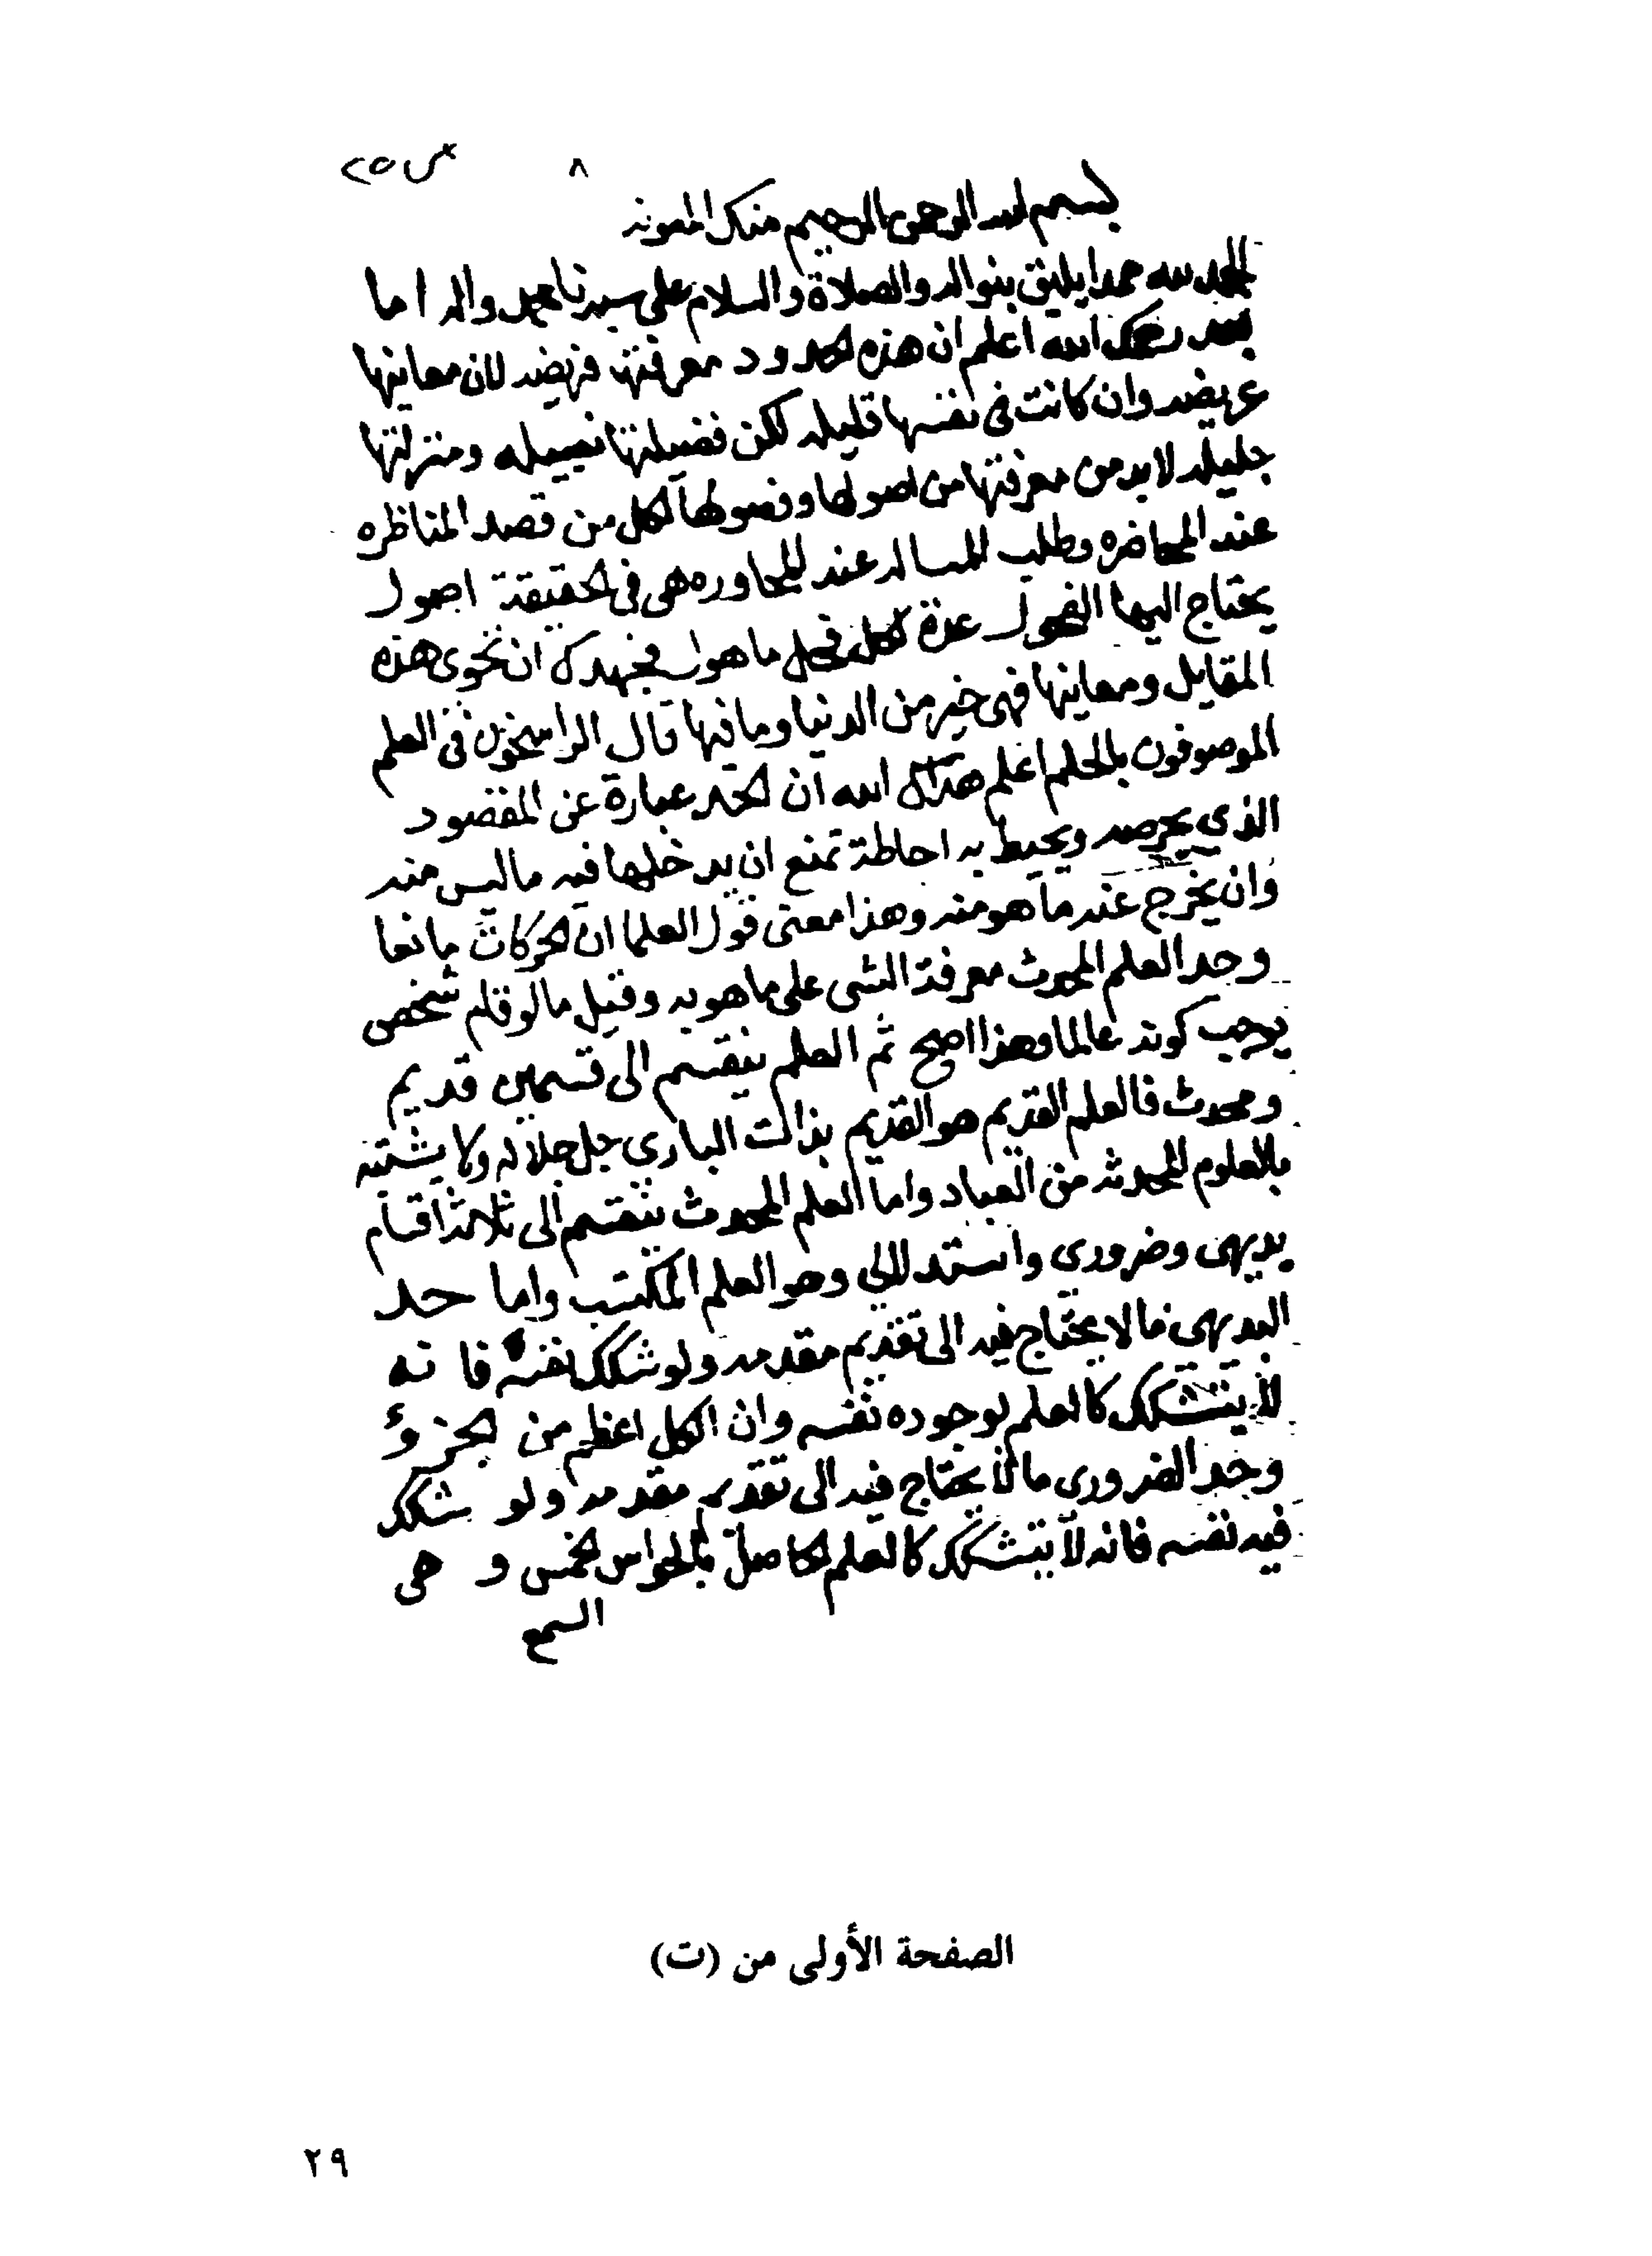 ص ٢٥
٨
بسم الله الرحمن الرحيم منك المعونه
الحمد لله حمدا يليق بنواله والصلاة والسلام على سيدنا محمد واله اما
بعد رحمك الله اعلم ان هذه الحدود معرفتها فريضه لان معانيها
عريضه وان كانت في نفسها قليله لكن فضيلتها نبيله ومنزلتها
جليله لابد من معرفتها من اصولها وفصولها لكل من قصد المناظره
عند المحاضره وطلب المساله عند المحاوره هى فى الحقيقة اصول
يحتاج اليها الفحول عدة لكل فحل ما هوا فجهدك ان تحوى هذه
المقايل ومعانيها فهى خير من الدنيا وما فيها قال الراسخون فى العلم
الموصوفون بالحلم اعلم هداك الله ان الحد عبارة عن المقصود
الذي يحرصه ويحيط به احاطة تمنع ان يدخلها فيه ما ليس منه
وان يخرج عنه ما هو منه وهذا معنى قول العلما ان الحركات مانعا
وحد العلم المحدث معرفة الشى على ما هو به وقيل ما لو قلم شخص
يوجب كونه عالما وهذا اصح ثم العلم ينقسم الى قسمين قديم
ومحدث فالعلم القديم هو القديم بذات البارى جل جلاله ولا يشتبه
بالعلوم المحدثه من العباد واما العلم المحدث ينقسم الى ثلاثة اقسام
بديهى وضرورى واستدلالي وهو العلم المكتسب واما حد
البديهى فما لا يحتاج فيه الى تقديم مقدمه ولو شكك نفسه فانه
لا يتشكك كالعلم لوجوده نفسه وان الكل اعظم من الجزؤ
وحد الضرورى ما لا يحتاج فيه الى تقديم مقدمه ولو شكك
فيه نفسه فانه لا يتشكك كالعلم الحاصل بالحواس الخمس و هى
السمع
الصفحة الأولى من (ت)
٢٩